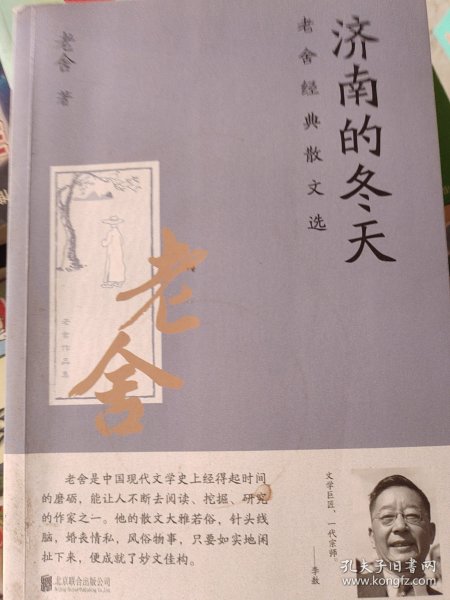 济南的冬天
老舍经典散文选
老舍 著
老舍
老舍作品集
老舍是中国现代文学史上经得起时间
的磨砺，能让人不断去阅读、挖掘、研究
的作家之一。他的散文大雅若俗，针头线
脑，婚丧情私，风俗物事，只要如实地闲
扯下来，便成就了妙文佳构。
文学巨匠，一代宗师。
——李敖
北京联合出版公司
Beijing United Publishing Co.,Ltd.
孔夫子旧书网
www.kongfz.com